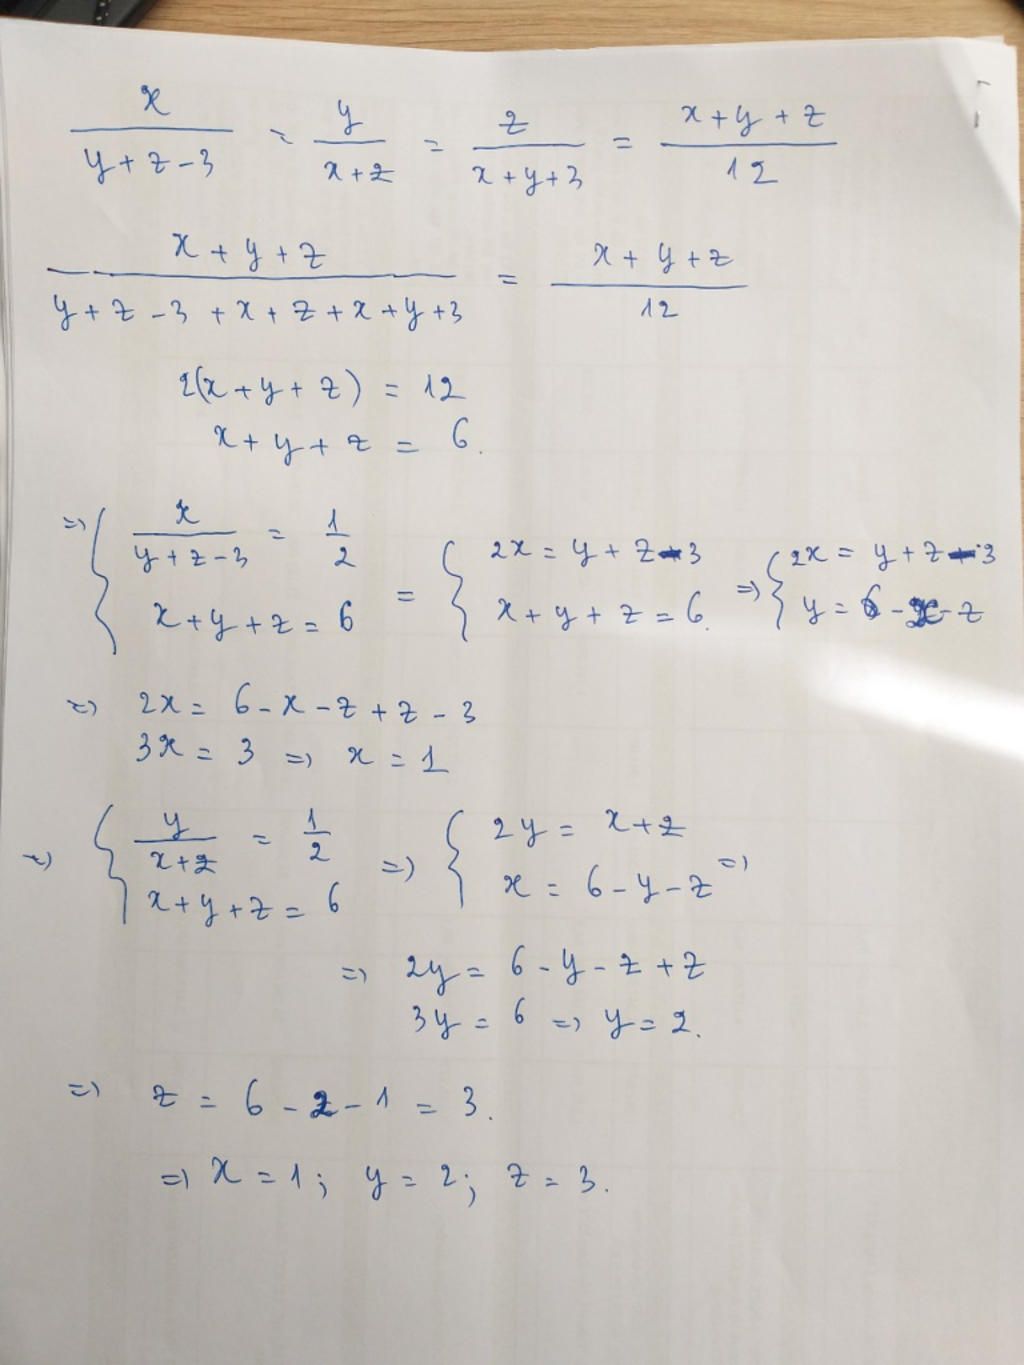 x/(y+z-3) = y/(x+z) = z/(x+y+3) = (x+y+z)/12
(x+y+z)/(y+z-3+x+z+x+y+3) = (x+y+z)/12
2(x+y+z) = 12
x+y+z = 6.
=> { x/(y+z-3) = 1/2 = { 2x = y+z-3 => { 2x = y+z-3
x+y+z = 6 x+y+z = 6. y = 6-x-z
=> 2x = 6-x-z+z-3
3x = 3 => x = 1
=> { y/(x+z) = 1/2 => { 2y = x+z =>
x+y+z = 6 x = 6-y-z
=> 2y = 6-y-z+z
3y = 6 => y = 2.
=> z = 6-2-1 = 3.
=> x = 1; y = 2; z = 3.